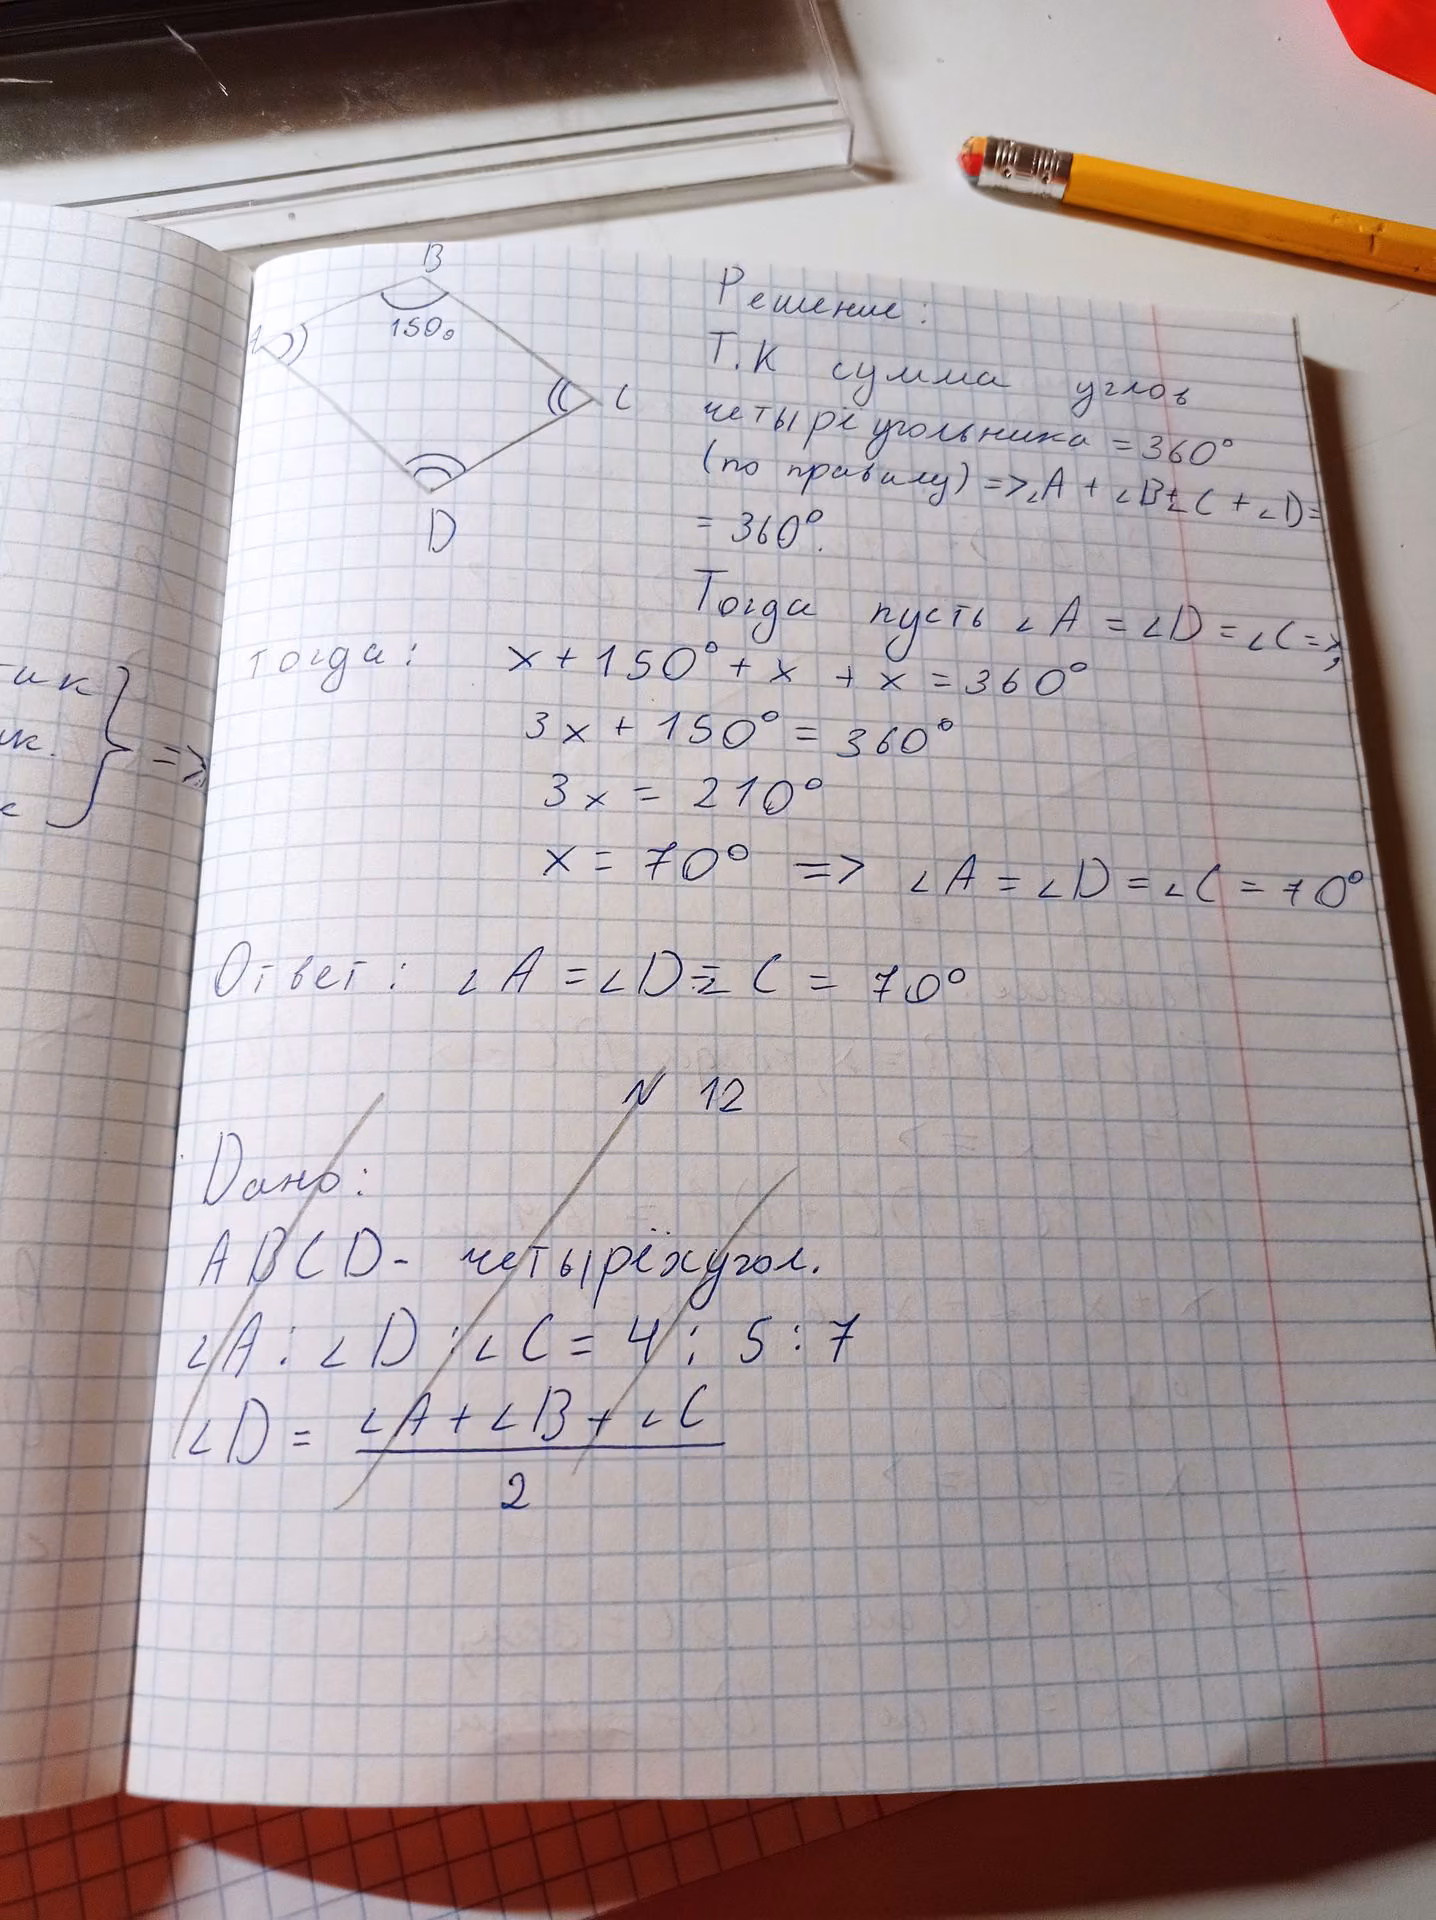 B
150°
C
D
Решение:
Т.К сумма углов
четырёугольника = 360°
(по правилу) => ∠A + ∠B + ∠C + ∠D =
= 360°.
Тогда пусть ∠A = ∠D = ∠C = x,
тогда: x + 150° + x + x = 360°
3x + 150° = 360°
3x = 210°
x = 70° => ∠A = ∠D = ∠C = 70°
Ответ: ∠A = ∠D = ∠C = 70°
N 12
Дано:
ABCD - четырёхугол.
∠A : ∠D : ∠C = 4 : 5 : 7
∠D = ∠A + ∠B + ∠C
2
=>